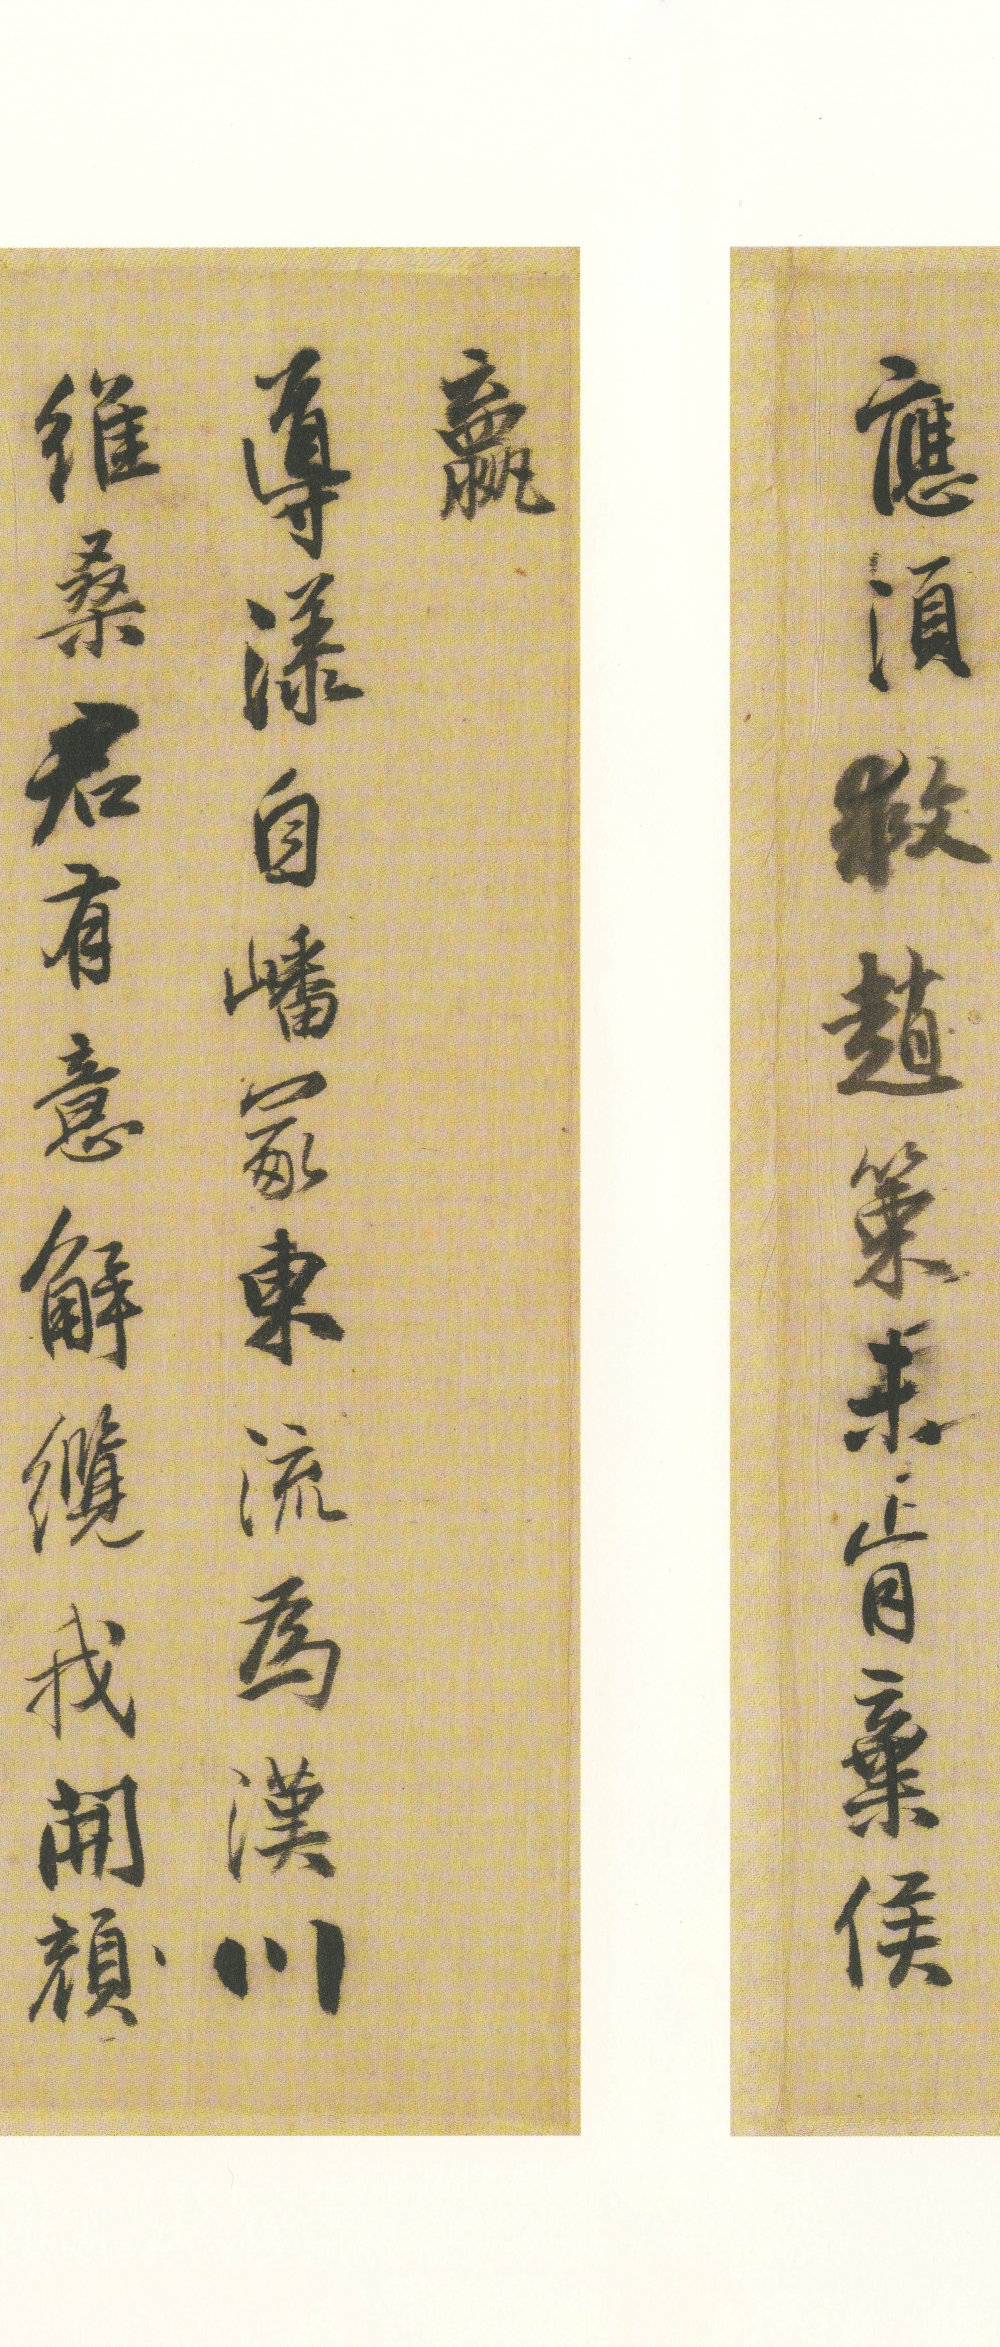 應須救趙策未肯棄侯
嬴
導漾自嶓冢東流為漢川
維桑君有意解纜我開顏